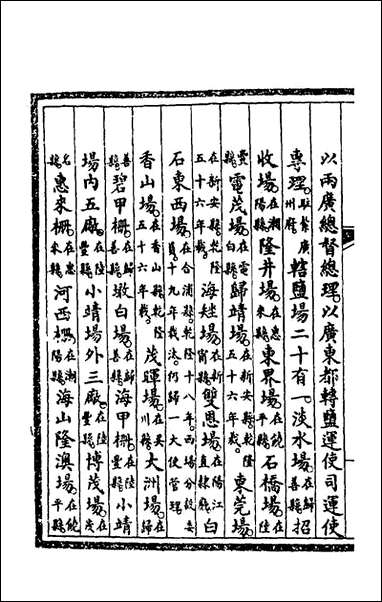 以兩廣總督總理以廣東都轉鹽運使司運使
專理駐紮廣州府轄鹽場二十有一淡水場在歸善縣招
收場在潮陽縣隆井場在惠東界場在饒平縣石橋場在陸
豐縣電茂場在電白縣歸靖場在新安縣乾隆五十六年裁東莞場
在新安縣乾隆五十六年裁海矬場在新甯縣雙恩場在陽江直隸廳白
石東西場在合浦縣乾隆十八年西場分設委員十九年裁汰仍歸一大使管理
香山場在香山縣乾隆五十六年裁茂暉場在吳川縣大洲場在歸
善縣碧甲柵在歸善縣墩白場在歸善縣海甲柵在陸豐縣小靖
場內五廠在陸豐縣小靖場外三廠在陸豐縣博茂場在茂
名縣惠來柵在惠來縣河西柵在潮陽縣海山隆澳場在饒平縣